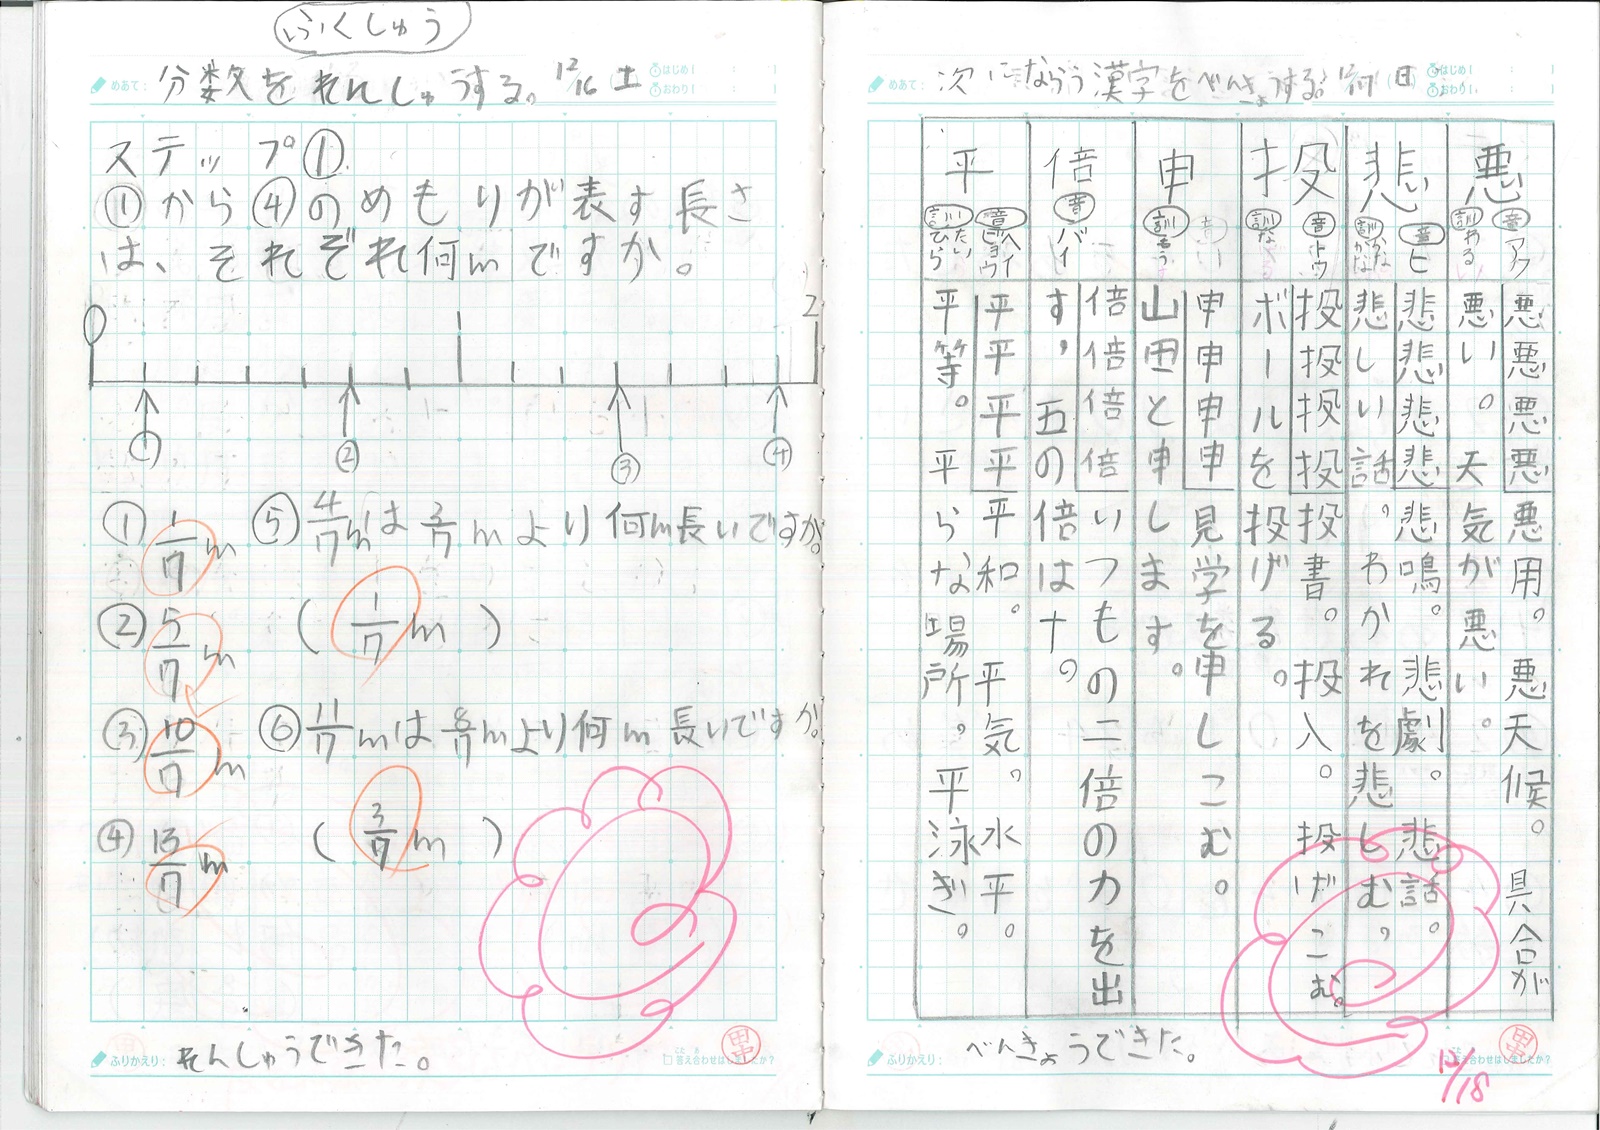 ふくしゅう
めあて: 分数をれんしゅうする。 12/16 (土)
はじめ! : 
おわり! : 
ステップ①
①から④のめもりが表す長さ
は、それぞれ何mですか。
0 2
① ② ③ ④
① 1/7 m
② 5/7 m
③ 10/7 m
④ 13/7 m
⑤ 4/7mは3/7mより何m長いですか。
( 1/7 m )
⑥ 11/7mは8/7mより何m長いですか。
( 3/7 m )
ふりかえり: れんしゅうできた。
答え合わせはしましたか?
めあて: 次にならう漢字をべんきょうする。 12/17 (日)
はじめ! : 
おわり! : 
悪
音 アク
訓 わるい
悪悪悪悪 悪用。 悪天候。 具合が
悪い。 天気が悪い。
悲
音 ヒ
訓 かな
悲悲悲悲 悲鳴。 悲劇。 悲話。
悲しい話。 わかれを悲しむ。
投
音 トウ
訓 な
投投投投 投書。 投入。 投げこむ。
ボールを投げる。
申
訓 もうす
申申申申 見学を申しこむ。
山田と申します。
倍
音 バイ
倍倍倍倍 いつもの二倍の力を出
す。 五の倍は十。
平
音 ヘイ ビョウ
訓 たいら ひら
平平平平 平和。 平気。 水平。
平等。 平らな場所。 平泳ぎ。
ふりかえり: べんきょうできた。
答え合わせはしましたか?
12/18